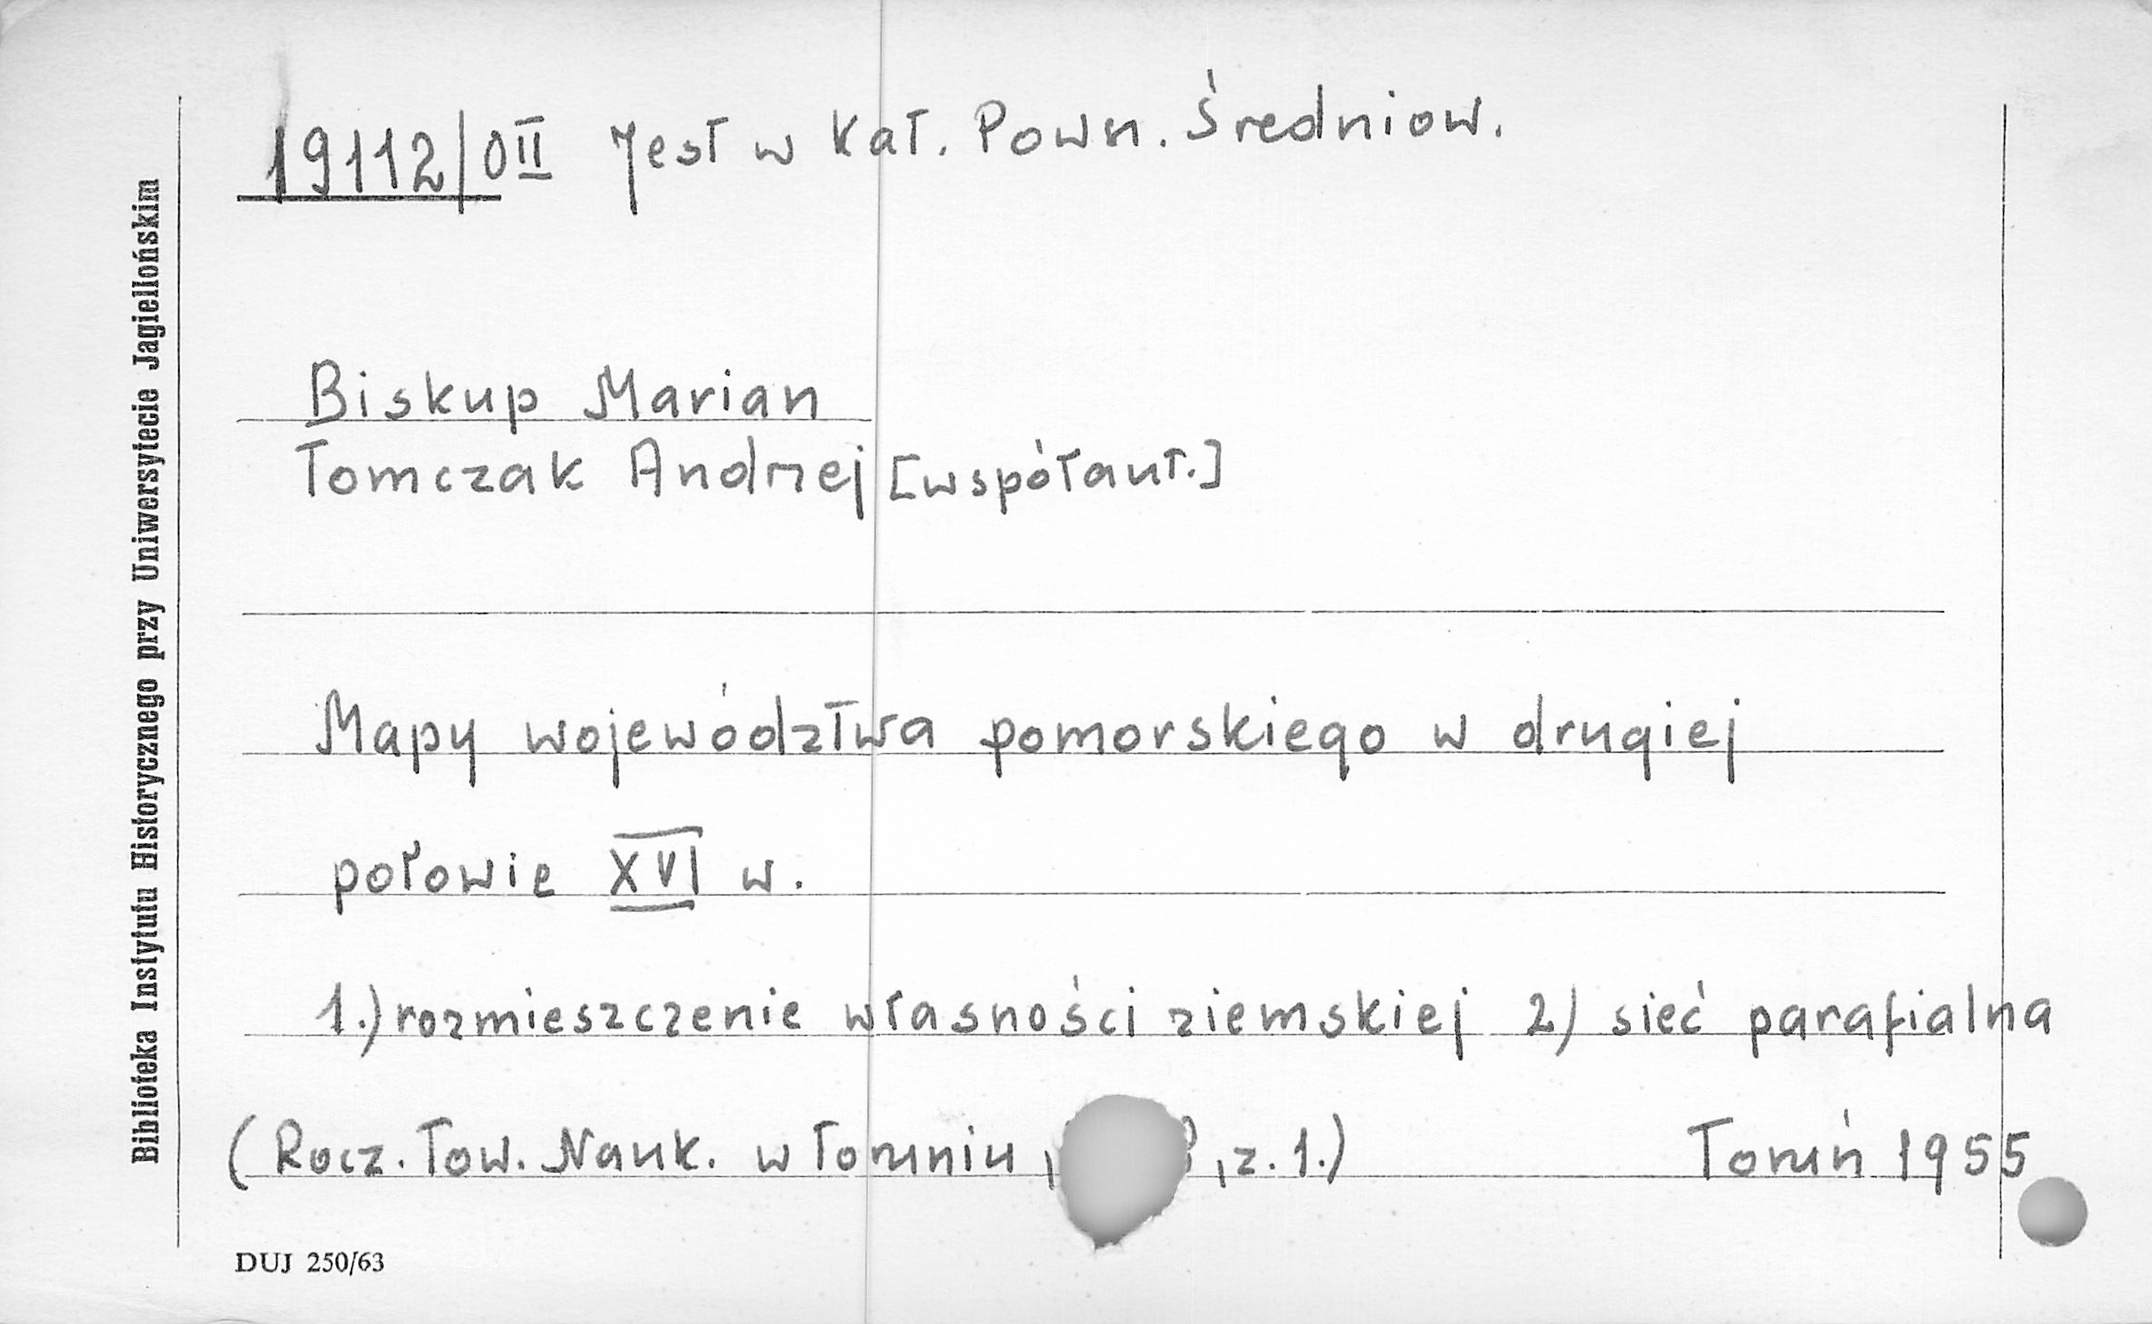 19112/0II Jest w Kat. Powsz. Średniow.
Biskup Marian
Tomczak Andrzej [współaut.]
Mapy województwa pomorskiego w drugiej
połowie XVI w.
1.) rozmieszczenie własności ziemskiej 2) sieć parafialna
(Rocz. Tow. Nauk. w Toruniu, , z. 1.) Toruń 1955
DUJ 250/63
Biblioteka Instytutu Historycznego przy Uniwersytecie Jagiellońskim